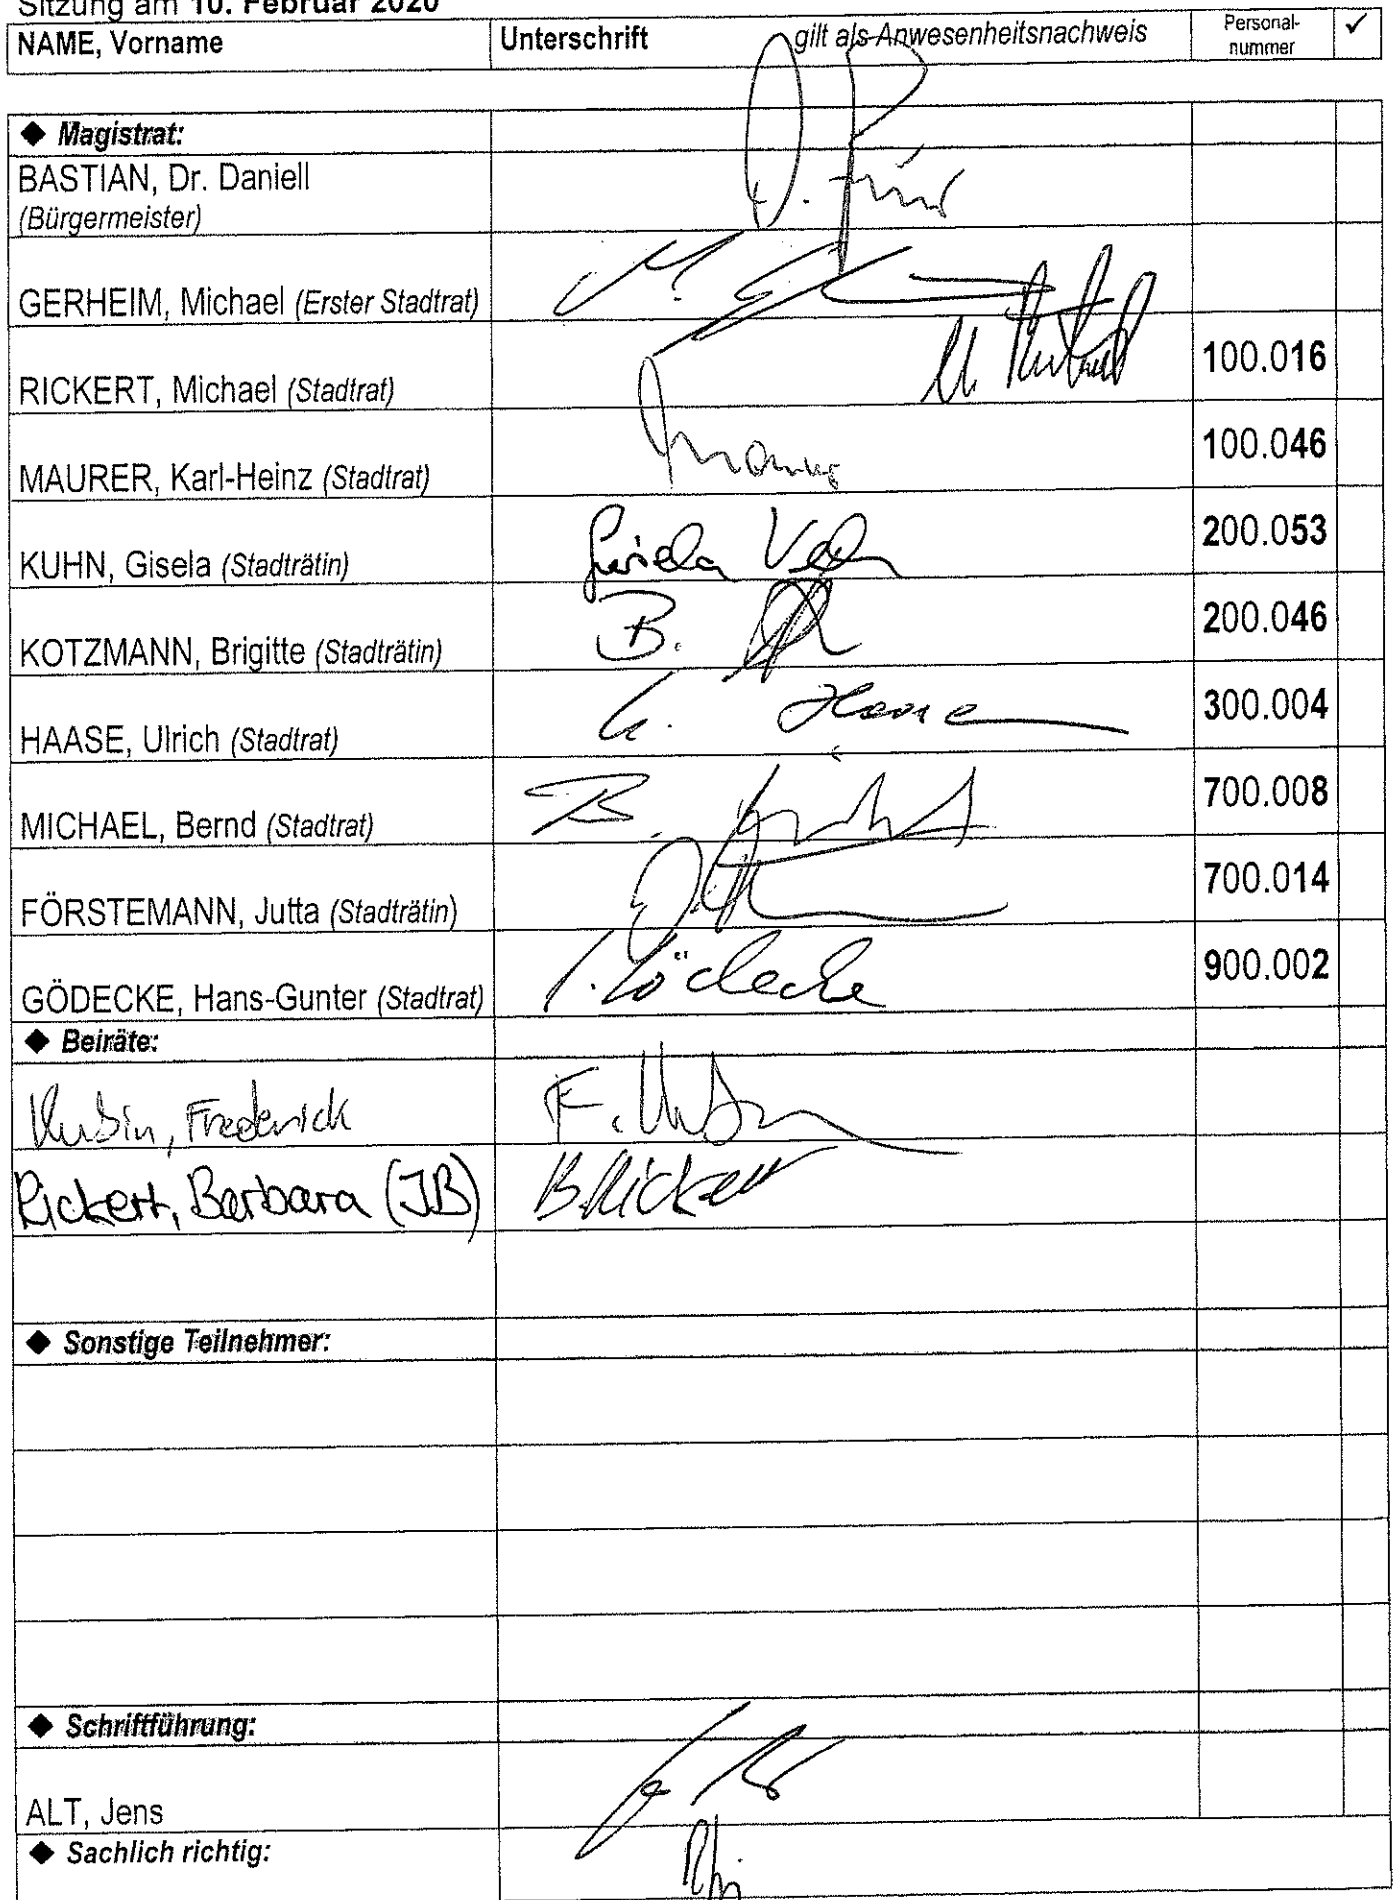 Sitzung am 10. Februar 2020
NAME, Vorname Unterschrift gilt als Anwesenheitsnachweis Personal-nummer ✓
◆ Magistrat:
BASTIAN, Dr. Daniell
(Bürgermeister)
GERHEIM, Michael (Erster Stadtrat) M.
RICKERT, Michael (Stadtrat) 100.016
MAURER, Karl-Heinz (Stadtrat) 100.046
KUHN, Gisela (Stadträtin) Gisela 200.053
KOTZMANN, Brigitte (Stadträtin) B. 200.046
HAASE, Ulrich (Stadtrat) 300.004
MICHAEL, Bernd (Stadtrat) B. 700.008
FÖRSTEMANN, Jutta (Stadträtin) 700.014
GÖDECKE, Hans-Gunter (Stadtrat) Gödecke 900.002
◆ Beiräte:
Kubin, Frederick F. Kubin
Rickert, Barbara (JB) B. Rickert
◆ Sonstige Teilnehmer:
◆ Schriftführung:
ALT, Jens
◆ Sachlich richtig: